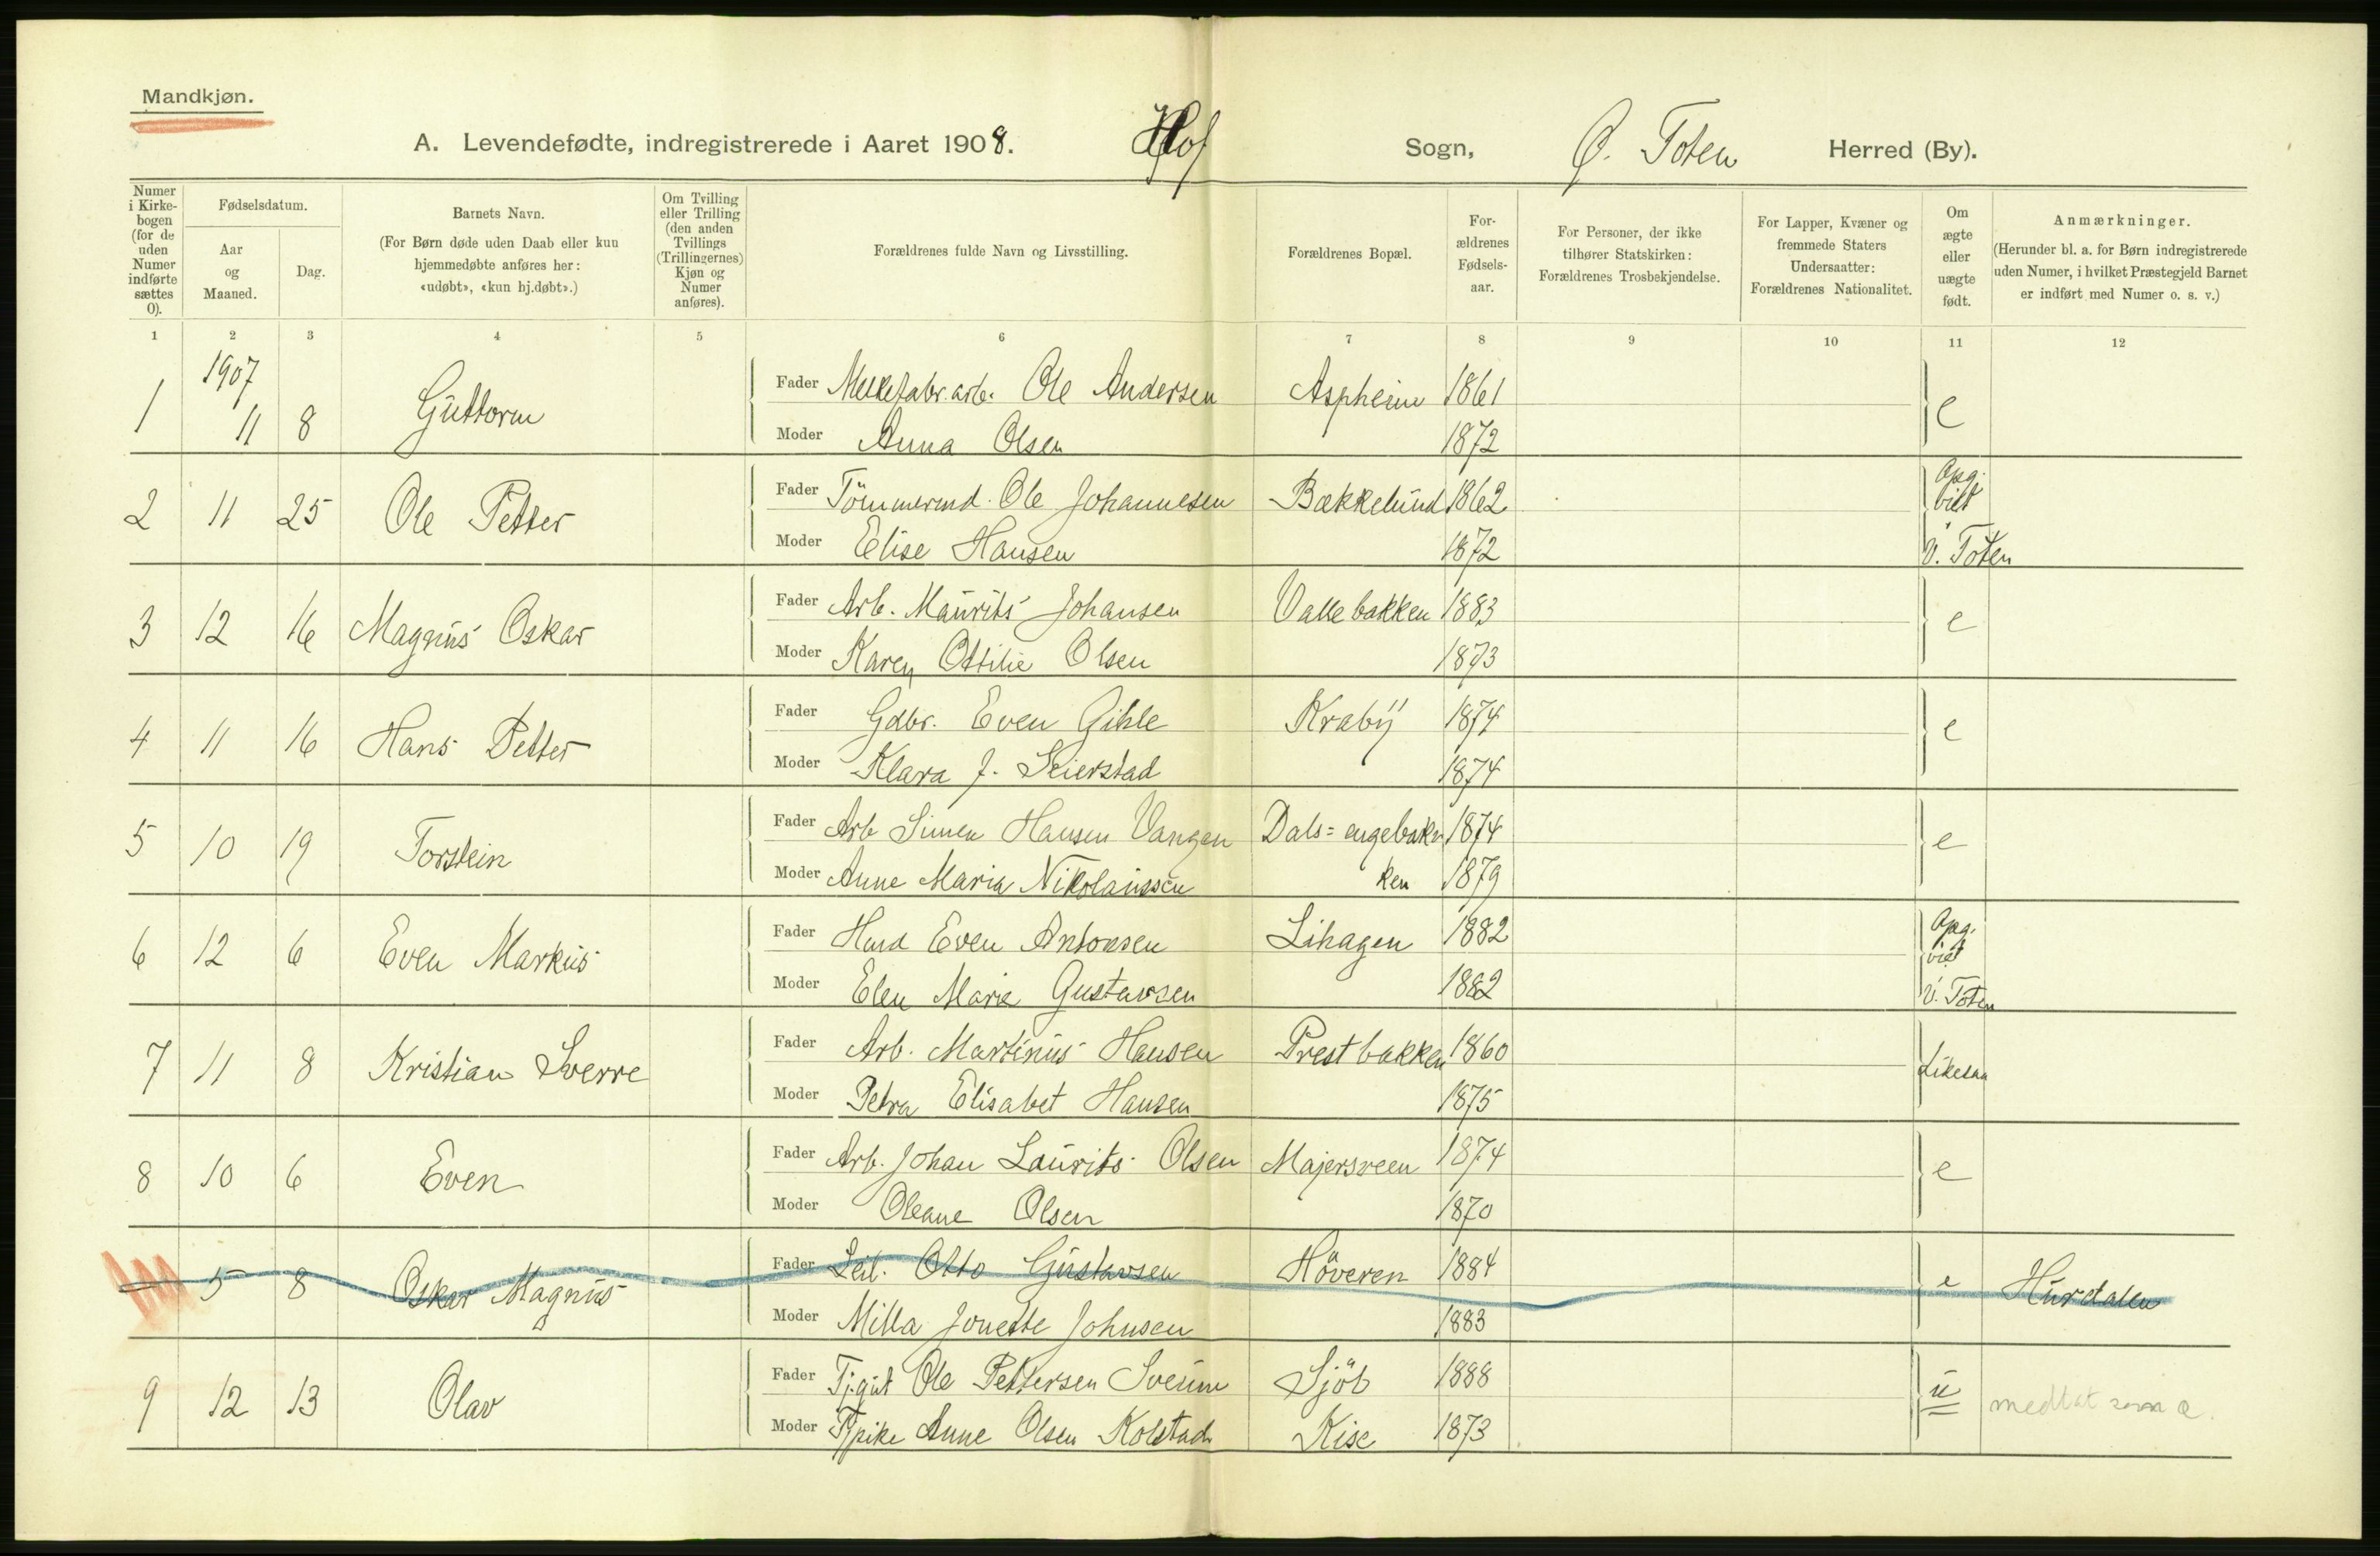 Mandkjøn.
A. Levendefødte, indregistrerede i Aaret 1908. Hof Sogn, Ø. Toten Herred (By).
Numer i Kirkebogen (for de uden Numer indførte sættes 0).
Fødselsdatum.
Aar og Maaned.
Dag.
Barnets Navn.
(For Børn døde uden Daab eller kun hjemmedøbte anføres her: «udøbt», «kun hj.døbt».)
Om Tvilling eller Trilling (den anden Tvillings (Trillingernes) Kjøn og Numer anføres).
Forældrenes fulde Navn og Livsstilling.
Forældrenes Bopæl.
For-ældrenes Fødsels-aar.
For Personer, der ikke tilhører Statskirken: Forældrenes Trosbekjendelse.
For Lapper, Kvæner og fremmede Staters Undersaatter: Forældrenes Nationalitet.
Om ægte eller uægte født.
Anmærkninger.
(Herunder bl. a. for Børn indregistrerede uden Numer, i hvilket Præstegjeld Barnet er indført med Numer o. s. v.)
1 2 3 4 5 6 7 8 9 10 11 12
1907
1 11 8 Guttorm Fader Melkefabr.arb. Ole Andersen Aspheim 1861 e
Moder Anna Olsen 1872
2 11 25 Ole Petter Fader Tömmermd. Ole Johannesen Bækkelund 1862 Opg. viet
Moder Elise Hansen 1872 V. Toten
3 12 16 Magnus Oskar Fader Arb. Maurits Johansen Vallebakken 1883 e
Moder Karen Ottilie Olsen 1873
4 11 16 Hans Petter Fader Gdbr. Even Gihle Kraby 1874 e
Moder Klara J. Seierstad 1874
5 10 19 Torstein Fader Arb Simen Hansen Vangen Dals=engebak 1874 e
Moder Anne Maria Nikolaussen ken 1879
6 12 6 Even Markus Fader Hmd Even Antonsen Lihagen 1882 Opg. viet
Moder Elen Marie Gustavsen 1882 V. Toten
7 11 8 Kristian Sverre Fader Arb. Martinus Hansen Prestbakken 1860 Likesaa
Moder Petra Elisabet Hansen 1875
8 10 6 Even Fader Arb. Johan Laurits Olsen Majersveen 1874 e
Moder Oleane Olsen 1870
5 8 Oskar Magnus Fader Leil. Otto Gustavsen Höveren 1884 e Hurdalen
Moder Milla Jonette Johnsen 1883
9 12 13 Olav Fader Tj.gut Ole Pettersen Sveum Sjöb 1888 u medtat som a.
Moder Tjpike Anne Olsen Kolstad Kise 1873